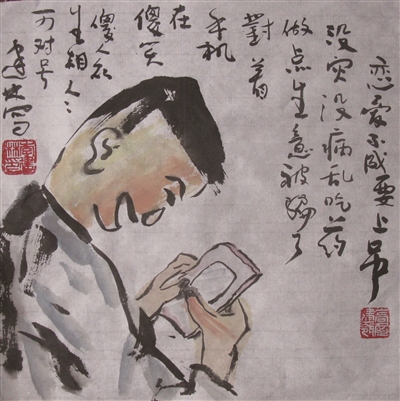 恋爱不成要上吊
没灾没病乱吃药
做点生意被骗了
對着
手机
在
傻笑
傻人众
生相人々
可对号
写